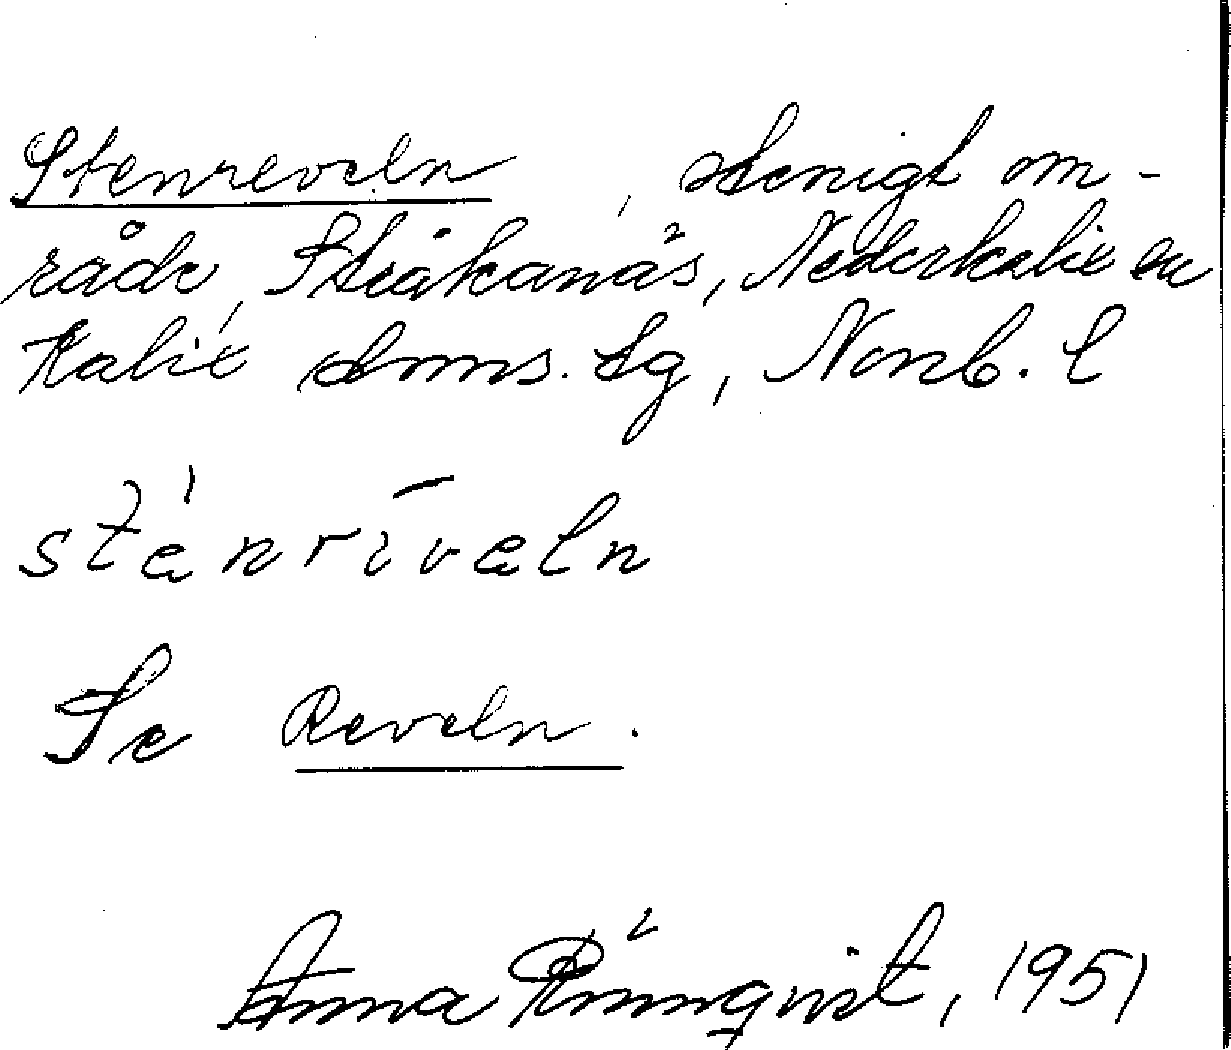 Stenreveln, stenigt om-
råde, Stråkanäs, Nederkalix sn
Kalix skns. tg, Norrb. l
sténrīvəln
Se Reveln.
Anna Rönnqvist, 1951